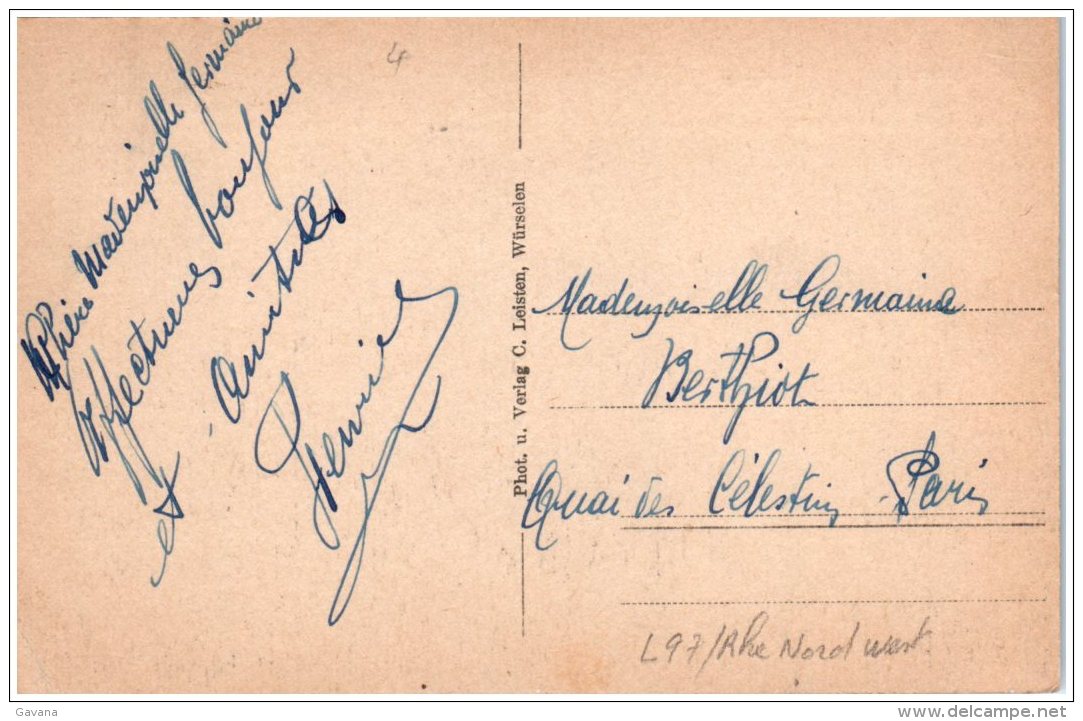 4
Chère Mademoiselle Germaine
Affectueux bonjour
et Amitiés
Phot. u. Verlag C. Leisten, Würselen
Mademoiselle Germaine
Berthiot
Quai des Célestins Paris
L97/Rhe Nord west
Gavana
www.delcampe.net